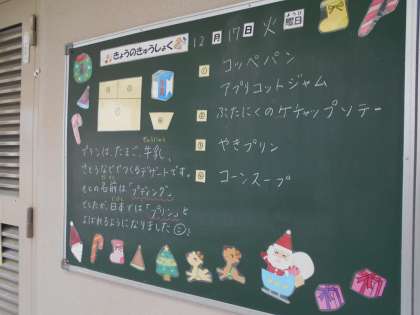 きょうのきゅうしょく
12月17日火曜日
① コッペパン
アプリコットジャム
② ぶたにくのケチャップソテー
③ やきプリン
④ コーンスープ
プリンは、たまご、牛乳、
さとうなどでつくるデザートです。
もとの名前は「プディング」
でしたが、日本では「プリン」と
よばれるようになりました